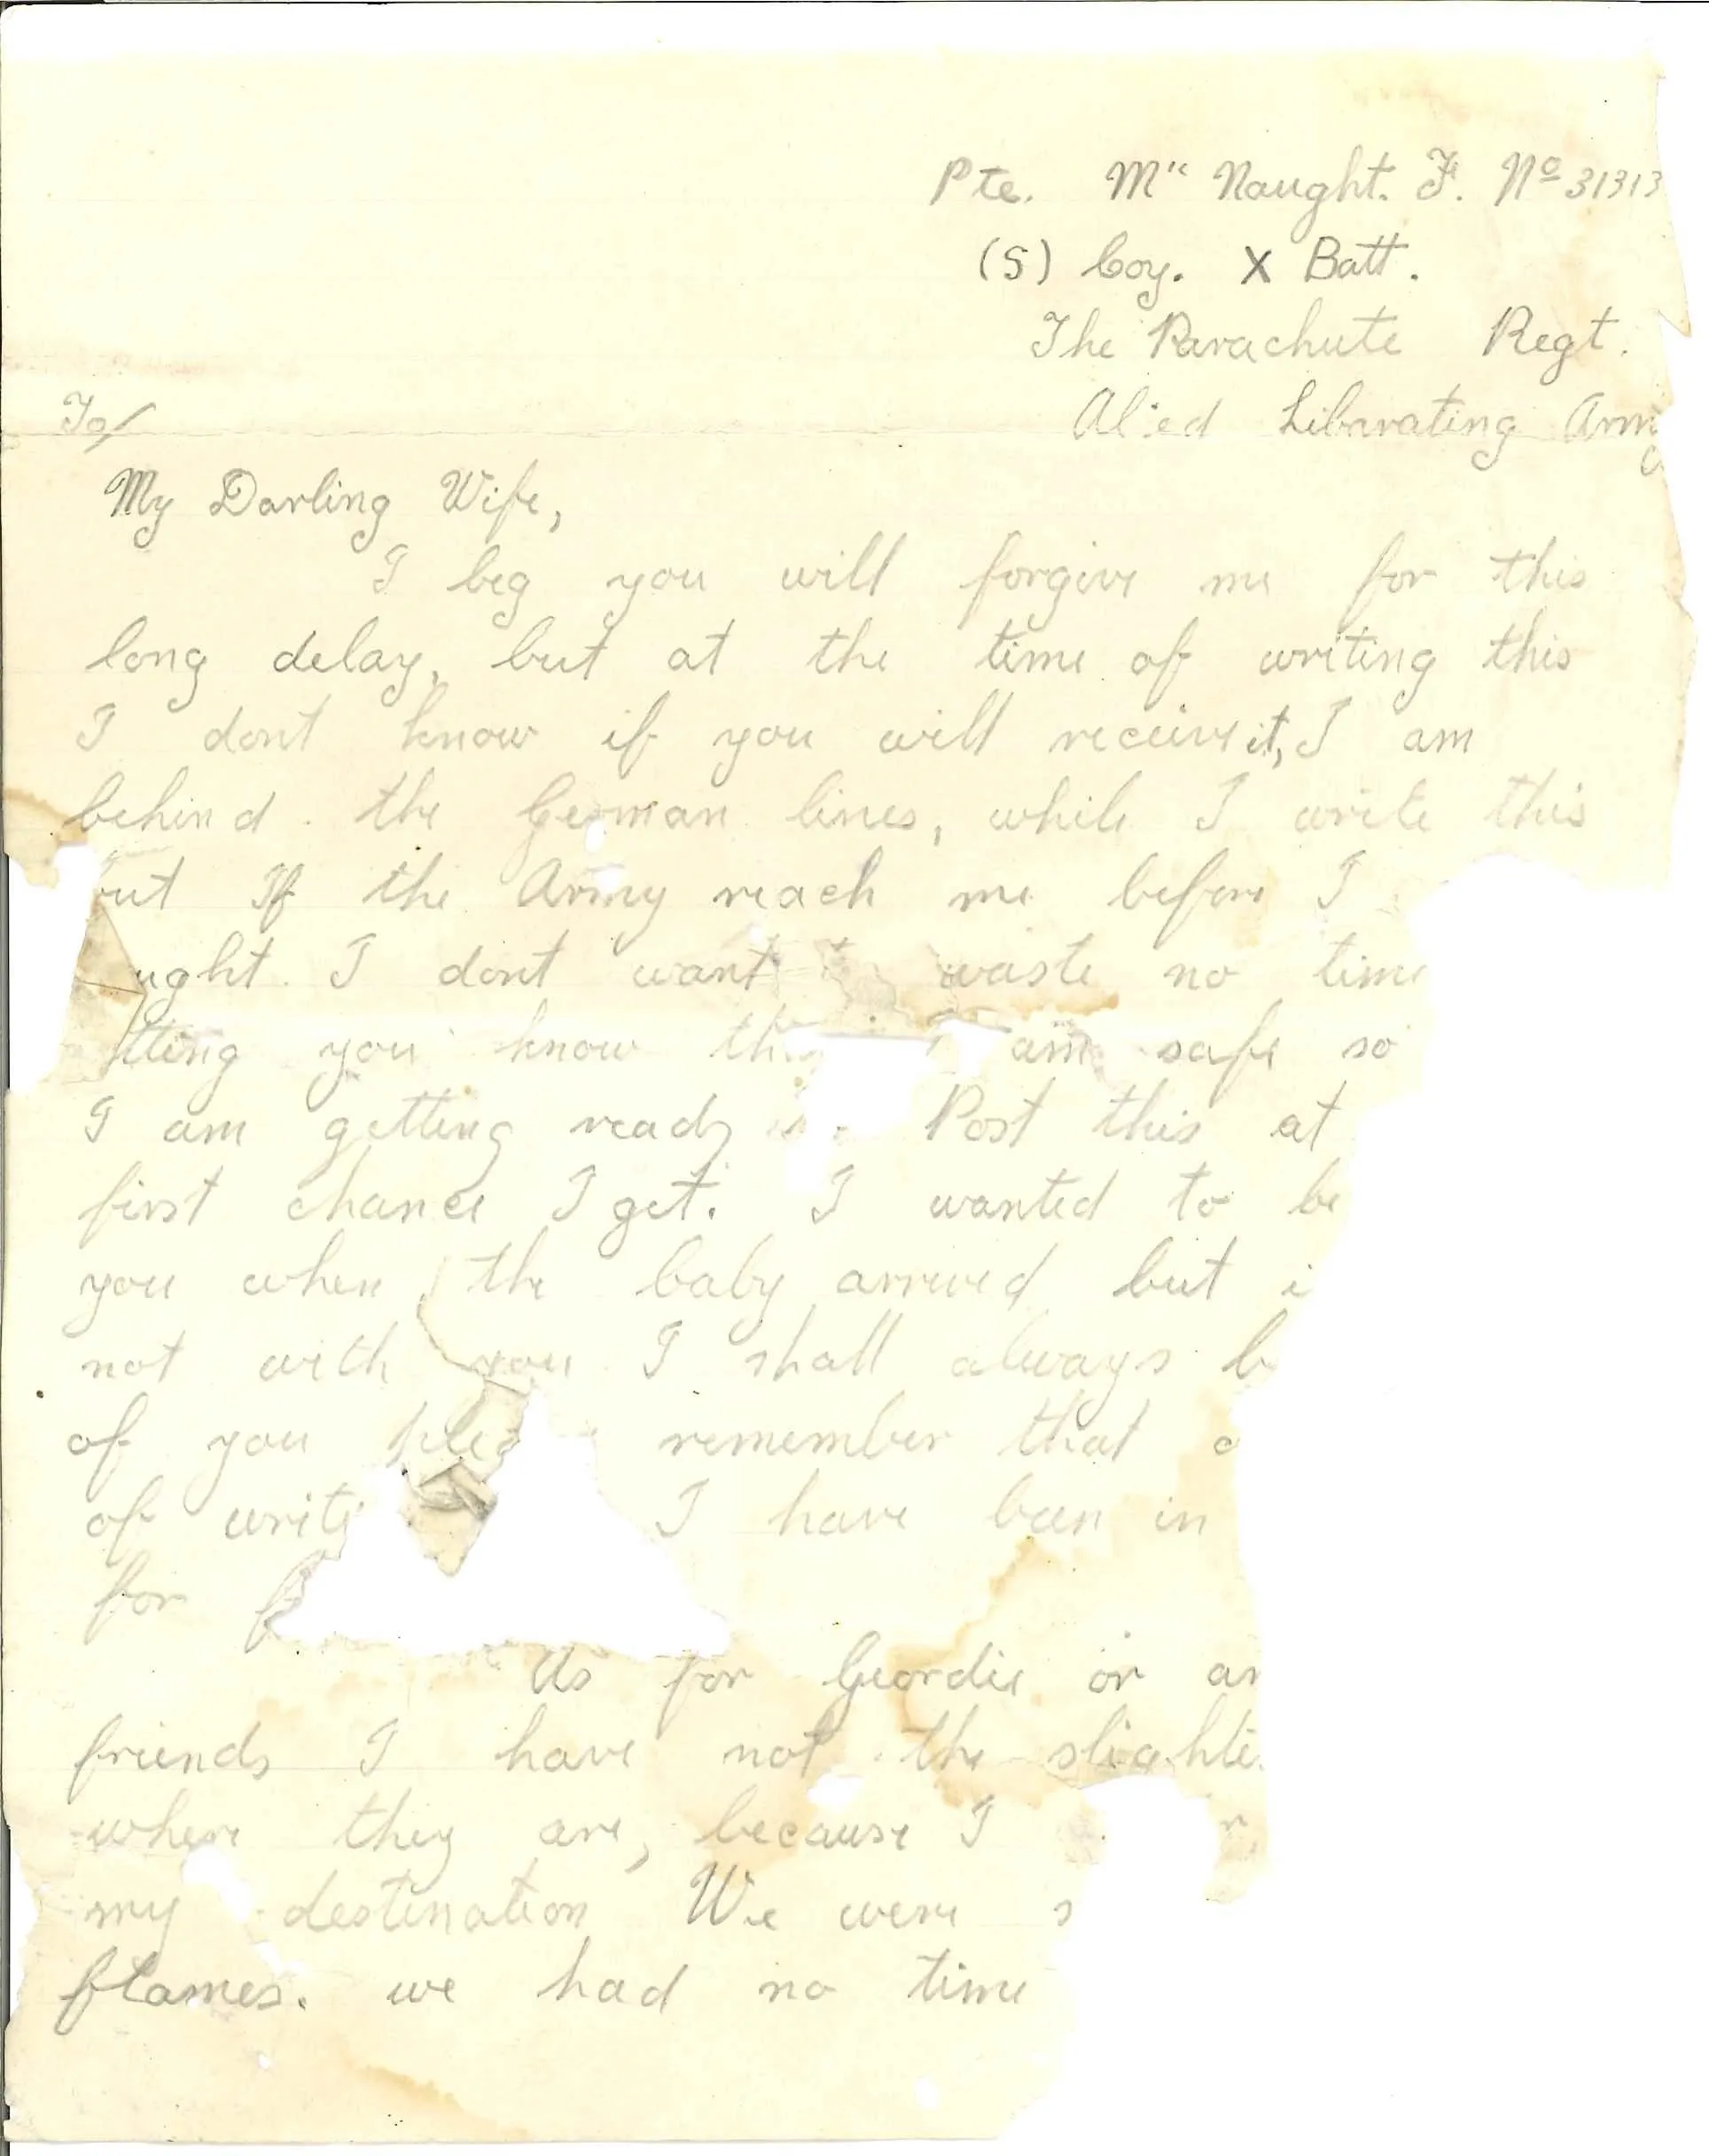 Pte. Mc Naught. F. No 31313
(S) Coy. X Batt.
The Parachute Regt.
Al:ed Libarating Army
To/
My Darling Wife,
I beg you will forgive me for this
long delay, but at the time of writing this
I dont know if you will receive it, I am
behind the German lines, while I write this
but If the Army reach me before I
ught I dont want waste no time
tting you know am safe so
I am getting ready Post this at
first chance I get. I wanted to be
you when the baby arrived but
not with you I shall always
of you remember that
of I have been in
for
As for Geordie or
friends I have not the
where they are, because I
my destination We were
flames. we had no time